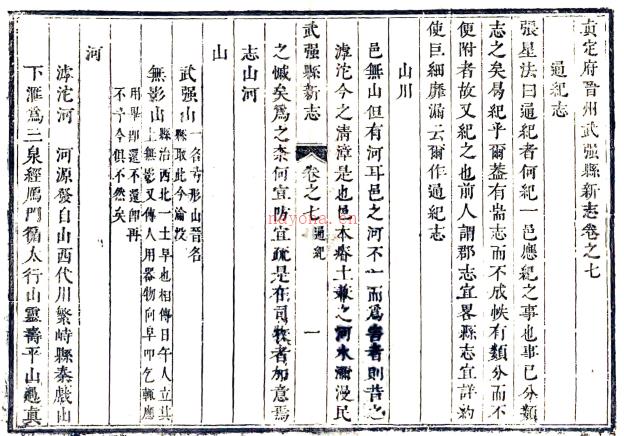 真定府晉州武强縣新志卷之七
通紀志
張星法曰通紀者何紀一邑應紀之事也事已分類
志之矣曷紀乎爾蓋有耑志而不成帙有類分而不
便附者故又紀之也前人謂郡志宜畧縣志宜詳約
使巨細靡漏云爾作通紀志
山川
邑無山但有河耳邑之河不一而爲害者則昔之
滹沱今之清漳是也邑本瘠土兼之河水瀰漫民
之慽矣爲之奈何宜防宜疏是在司牧者加意焉
志山河
武强縣新志 卷之七 通紀 一
山
武强山 一名奇形山晉名
縣取此今淪没
無影山 縣治西北一土阜也相傳日午人立其
上無影又傳人用器物向阜叩乞輒應
用畢即還不還即再
不予今俱不然矣
河
滹沱河 河源發自山西代州繁峙縣泰戲山
下滙爲三泉經鴈門循太行山靈壽平山過真
nayona.cn